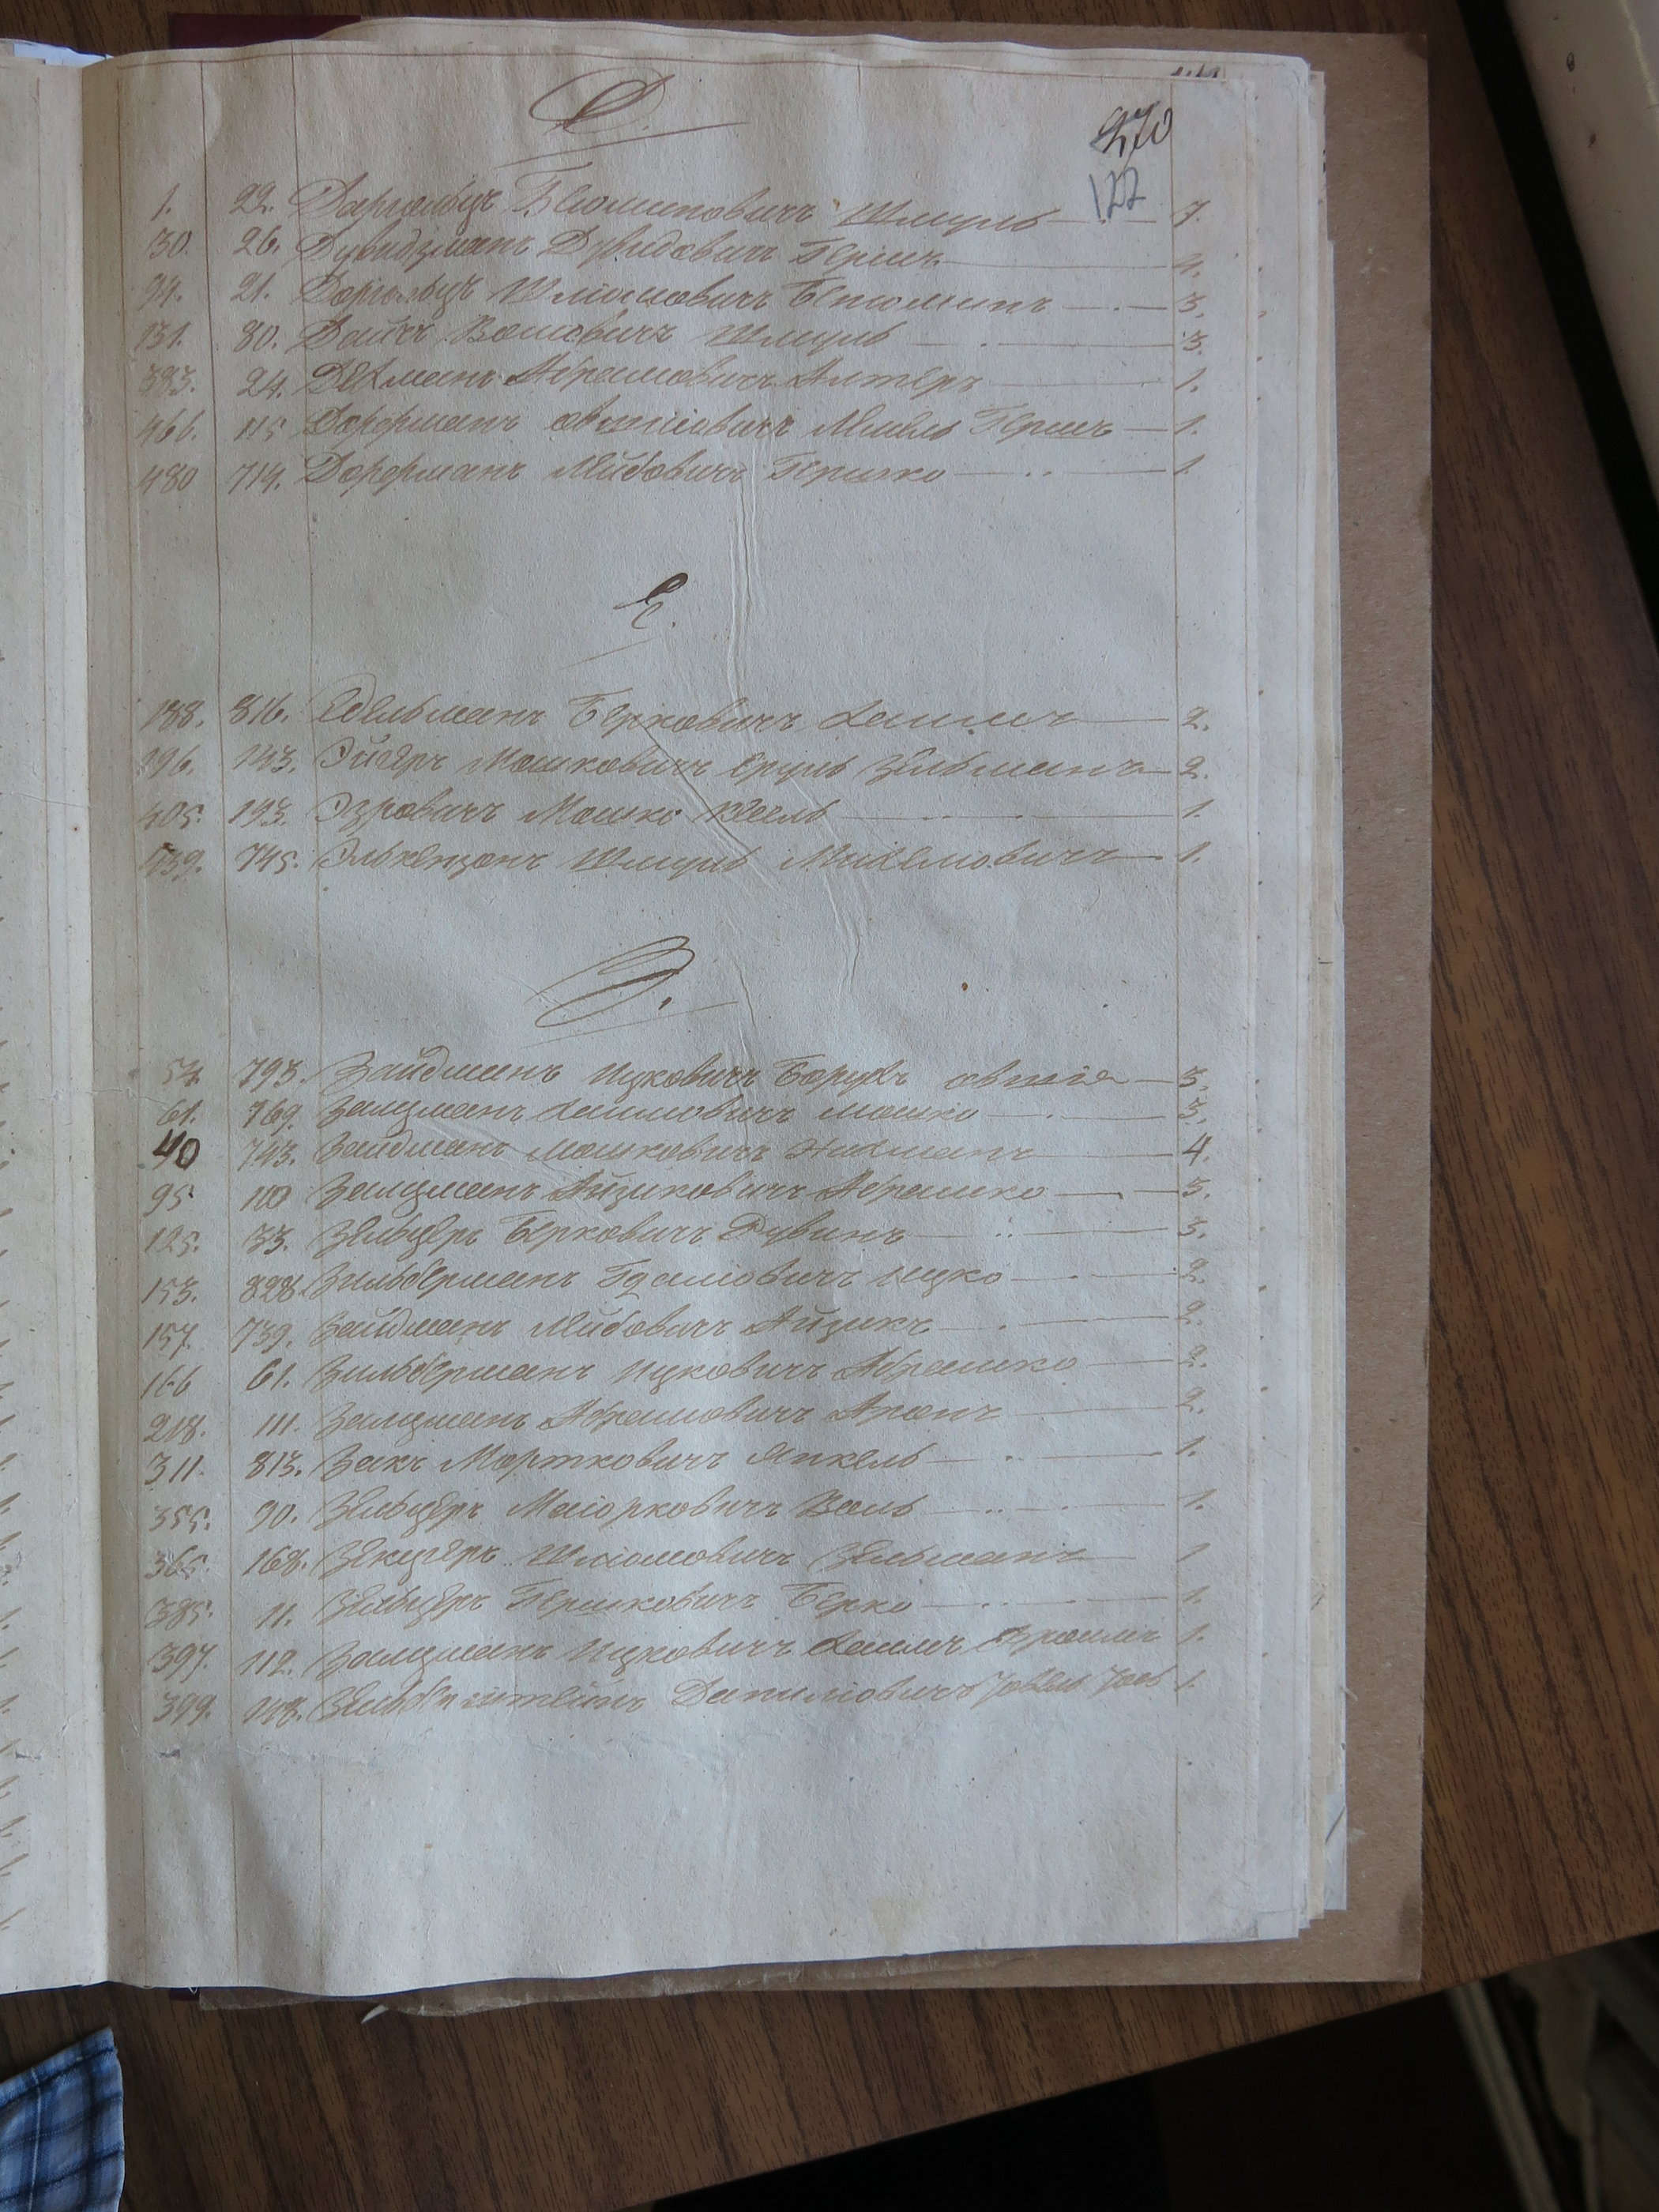 Д.
270
122
1. 22. Даргольцъ Беюминовичъ Шмуль 7.
30. 26. Дувидзманъ Дувидовичъ Гершъ 4.
94. 21. Даргольцъ Шліомовичъ Бенюминъ 3.
131. 80. Дайчъ Волковичъ Шмуль 3.
393. 24. Дехманъ Абрамовичъ Алтеръ 1.
466. 115 Дорфманъ Овшіевичъ Гершъ 1.
480 714. Дорфманъ Лейбовичъ Гершко 1.
Е.
188. 816. Едельманъ Берковичъ Хаимъ 2.
196. 143. Эйгеръ Мошковичъ Сруль Зельманъ 2.
405. 193. Эзровичъ Мошко 1.
439. 745. Элькензонъ Шмуль Михелювичъ 1.
З.
54. 793. Зайдманъ Ицковичъ Борухъ Овшія 3.
61. 769. Залцманъ Хаимовичъ Мошко 3.
40 743. Зайдманъ Мошковичъ Нахманъ 4.
95 110 Залцманъ Айзиковичъ Абрамко 3.
125. 33. Зельцеръ Берковичъ Дувинъ 3.
153. 828. Зильберманъ Гдаліовичъ Ицко 2.
157. 739. Зайдманъ Лейбовичъ Айзикъ 2.
166 61. Зильберманъ Ицковичъ Абрамко 2.
218. 111. Залцманъ Абрамовичъ Аронъ 2.
311. 813. Закъ Мортковичъ Янкель 1.
355. 90. Зельцеръ Маіорковичъ 1.
365. 168. Зекцеръ Шліомовичъ Зельманъ 1
385. 11. Зельцеръ Гершковичъ Берко 1.
397. 112. Залцманъ Ицковичъ Хаимъ Сроимъ 1.
399. 148. Даниліовичъ 1.